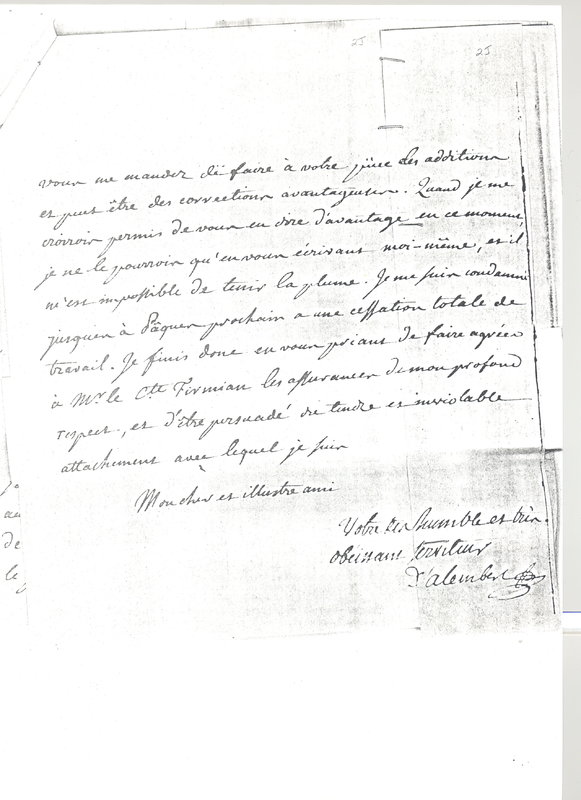 25
25
vous me mandez de faire à votre piéce des additions
et peut être des corrections avantageuses. Quand je me
croirois permis de vous en dire d'avantage en ce moment,
je ne le pourrois qu'en vous écrivant moi-même, et il
m'est impossible de tenir la plume. Je me suis condamné
jusques à Pâques prochain a une cessation totale de
travail. Je finis donc en vous priant de faire agréer
à Mr. le Cte. Firmian les assurances de mon profond
respect, et d'être persuadé du tendre et inviolable
attachement avec lequel je suis
Mon cher et illustre ami
Votre très humble et très
obeissant serviteur
D'alembert
de
le